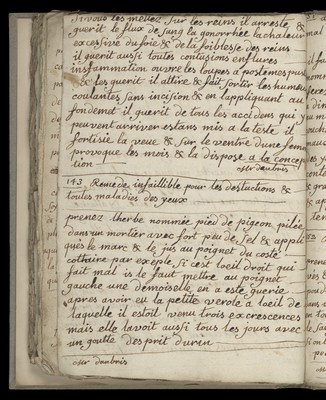 si vous les mettez sur les reins il arreste &
guerit le flux de sang la gonorrhée la chaleur
excessive du foie & de la foiblesse des reins
il guerit aussi toutes contusions enflures
inflammation ouvre les loupes apostemes pus
& les guerit il attire & fait sortir les humeurs
coulantes sans incision & en lappliquant au
fondemet il guerit de tous les accidens qui y
peuvent arriver estans mis a la teste il
fortifie la veue & sur le ventre dune feme
provoque les mois & la dispose a la concep
tion
Mr daubris
143 Remede infaillible pour les defluctions &
toutes maladies des yeux
prenez lherbe nommée pied de pigeon pilée
dans un mortier avec fort peu de sel & appli
qués le marc & le jus au poignet du costé
cottraire par exeple si cest loeil droit qui
fait mal il le faut mettre au poignet
gauche une demoiselle en a este guerie
apres avoir eu la petite verole a loeil de
laquelle il estoit venu trois excrescences
mais elle lavoit aussi tous les jours avec
un goutte desprit durin
Mr daubris